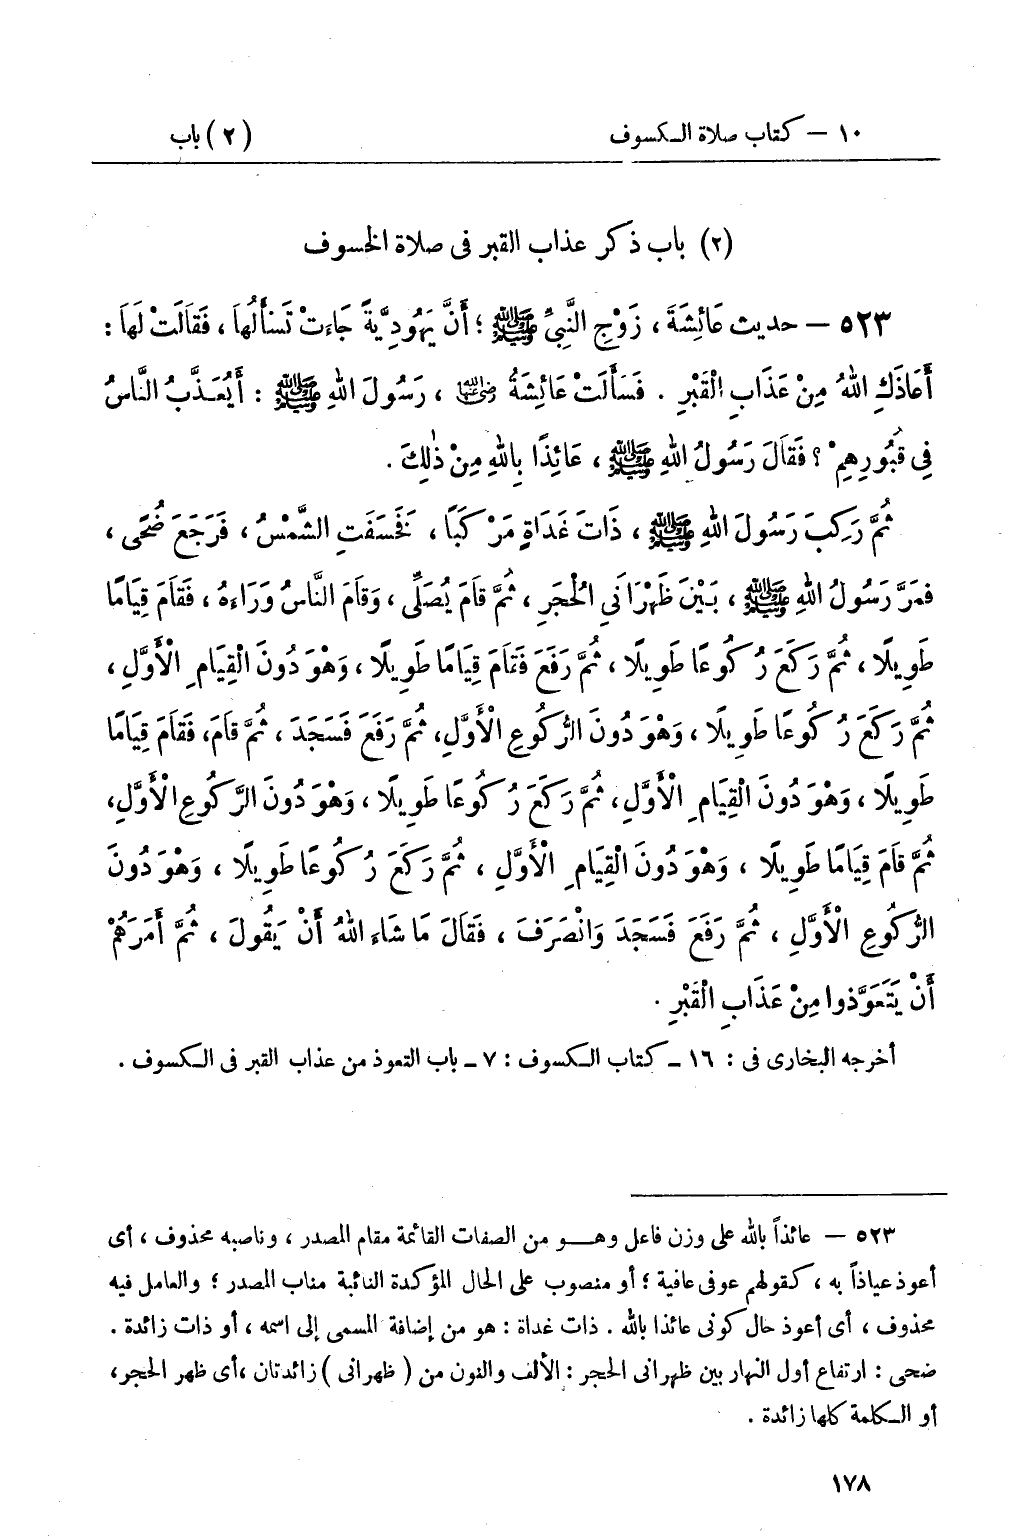 ١٠ – كتاب صلاة الكسوف (٢) باب
(٢) باب ذكر عذاب القبر فى صلاة الخسوف
٥٢٣ – حديث عَائِشَةَ ، زَوْجِ النَّبِيِّ ﷺ ؛ أَنَّ يَهُودِيَّةً جَاءَتْ تَسْأَلُهَا ، فَقَالَتْ لَهَا :
أَعَاذَكِ اللهُ مِنْ عَذَابِ الْقَبْرِ . فَسَأَلَتْ عَائِشَةُ رضي الله عنها ، رَسُولَ اللهِ ﷺ : أَيُعَذَّبُ النَّاسُ
فِي قُبُورِهِمْ ؟ فَقَالَ رَسُولُ اللهِ ﷺ ، عَائِذًا بِاللهِ مِنْ ذٰلِكَ .
ثُمَّ رَكِبَ رَسُولَ اللهِ ﷺ ، ذَاتَ غَدَاةٍ مَرْكَبًا ، فَخَسَفَتِ الشَّمْسُ ، فَرَجَعَ ضُحًى ،
فَمَرَّ رَسُولُ اللهِ ﷺ ، بَيْنَ ظَهْرَانَيِ الْحُجَرِ ، ثُمَّ قَامَ يُصَلِّى ، وَقَامَ النَّاسُ وَرَاءَهُ ، فَقَامَ قِيَامًا
طَوِيلًا ، ثُمَّ رَكَعَ رُكُوعًا طَوِيلًا ، ثُمَّ رَفَعَ فَقَامَ قِيَامًا طَوِيلًا ، وَهْوَ دُونَ الْقِيَامِ الْأَوَّلِ ،
ثُمَّ رَكَعَ رُكُوعًا طَوِيلًا ، وَهْوَ دُونَ الرُّكُوعِ الْأَوَّلِ، ثُمَّ رَفَعَ فَسَجَدَ ، ثُمَّ قَامَ، فَقَامَ قِيَامًا
طَوِيلًا ، وَهْوَ دُونَ الْقِيَامِ الْأَوَّلِ، ثُمَّ رَكَعَ رُكُوعًا طَوِيلًا ، وَهْوَ دُونَ الرُّكُوعِ الْأَوَّلِ،
ثُمَّ قَامَ قِيَامًا طَوِيلًا ، وَهْوَ دُونَ الْقِيَامِ الْأَوَّلِ ، ثُمَّ رَكَعَ رُكُوعًا طَوِيلًا ، وَهْوَ دُونَ
الرُّكُوعِ الْأَوَّلِ ، ثُمَّ رَفَعَ فَسَجَدَ وَانْصَرَفَ ، فَقَالَ مَا شَاءَ اللهُ أَنْ يَقُولَ ، ثُمَّ أَمَرَهُمْ
أَنْ يَتَعَوَّذوا مِنْ عَذَابِ الْقَبْرِ .
أخرجه البخارى فى : ١٦ ـ كتاب الكسوف : ٧ ـ باب التعوذ من عذاب القبر فى الكسوف .
٥٢٣ – عائذاً بالله على وزن فاعل وهو من الصفات القائمة مقام المصدر ، وناصبه محذوف ، أى
أعوذ عياذاً به ، كقولهم عوفى عافية ؛ أو منصوب على الحال المؤكدة النائبة مناب المصدر ؛ والعامل فيه
محذوف ، أى أعوذ حال كونى عائذا بالله . ذات غداة : هو من إضافة المسمى إلى اسمه ، أو ذات زائدة .
ضحى : ارتفاع أول النهار بين ظهرانى الحجر : الألف والنون من ( ظهرانى ) زائدتان ، أى ظهر الحجر،
أو الكلمة كلها زائدة .
١٧٨